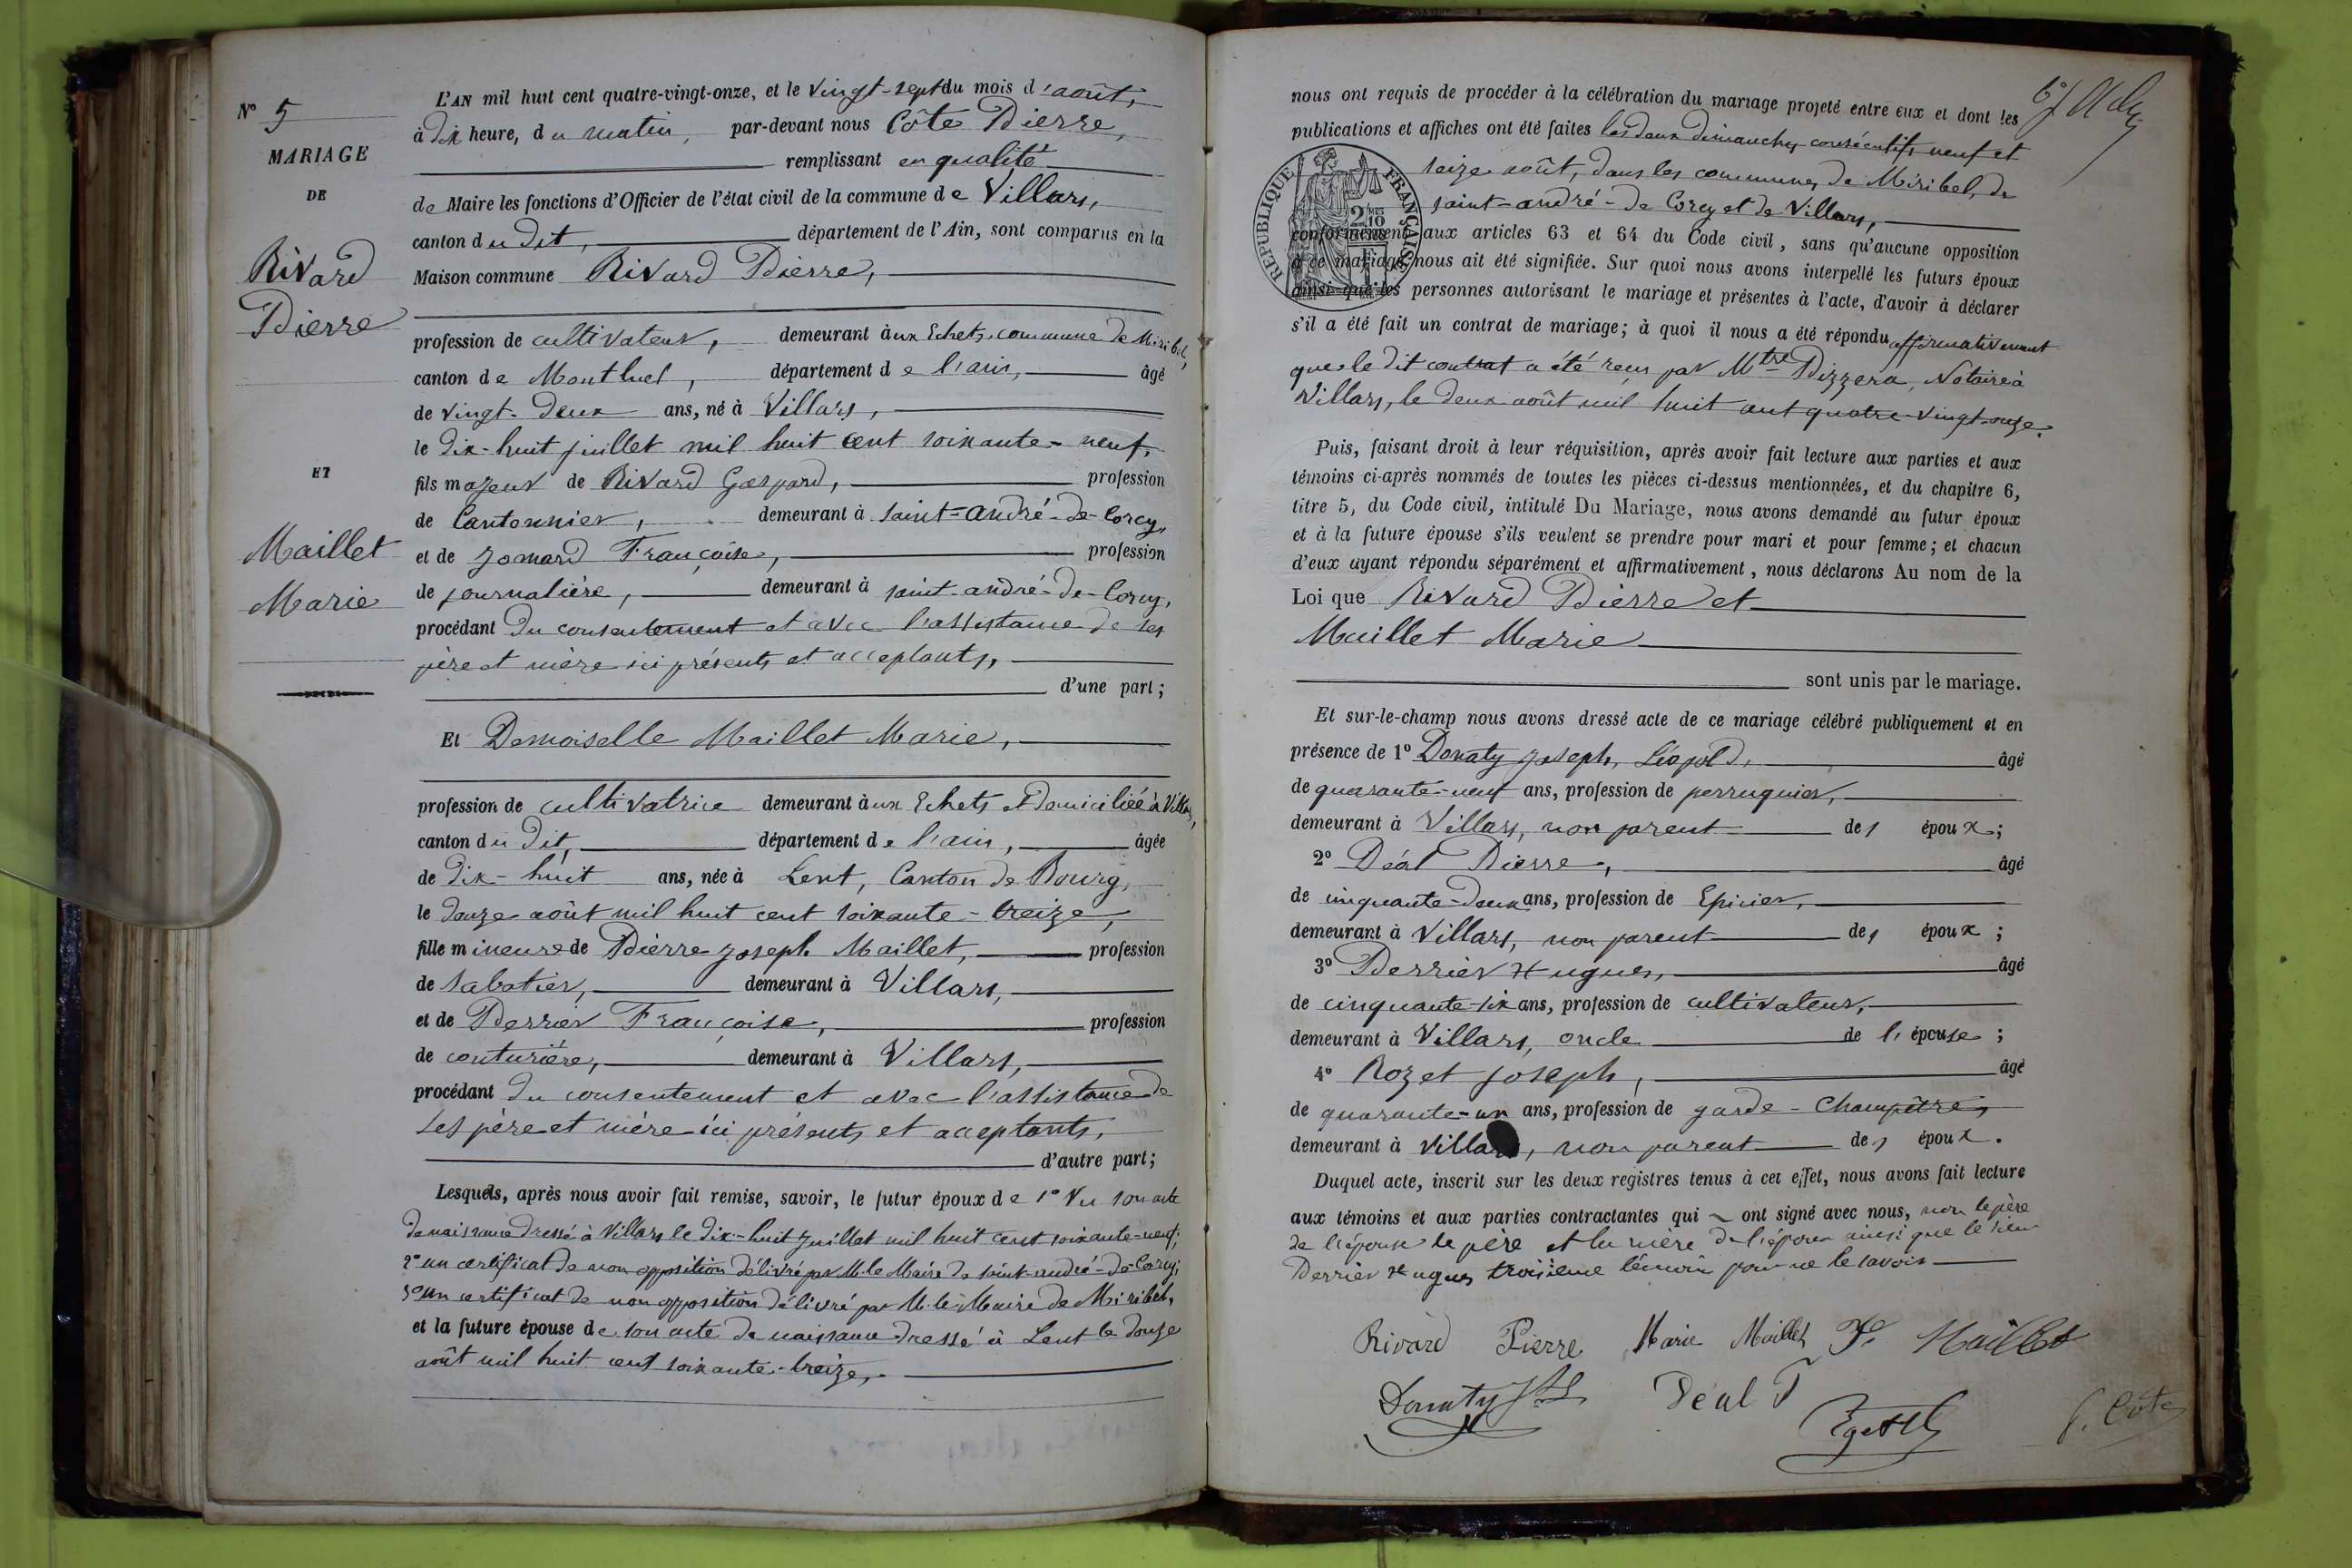 N° 5
MARIAGE
DE
Rivard
Pierre
ET
Maillet
Marie
L'AN mil huit cent quatre-vingt-onze, et le vingt-sept du mois d'août,
à dix heure, du matin, par-devant nous Côte Pierre,
remplissant en qualité
de Maire les fonctions d'Officier de l'état civil de la commune de Villars,
canton du dit, département de l'Ain, sont comparus en la
Maison commune Rivard Pierre,
profession de cultivateur, demeurant aux Echets, commune de Miribel,
canton de Montluel, département de l'ain, âgé
de vingt-deux ans, né à Villars,
le dix-huit juillet mil huit cent soixante-neuf,
fils majeur de Rivard Gaspard, profession
de Cantonnier, demeurant à saint-andré-de-Corcy,
et de Jomard Françoise, profession
de journalière, demeurant à saint-andré-de-Corcy,
procédant du consentement et avec l'assistance de ses
père et mère ici présents et acceptants,
d'une part;
Et Demoiselle Maillet Marie,
profession de cultivatrice demeurant aux Echets et domiciliée à Villars,
canton du dit, département de l'ain, âgée
de dix-huit ans, née à Lent, Canton de Bourg,
le douze août mil huit cent soixante-treize,
fille mineure de Pierre Joseph Maillet, profession
de sabotier, demeurant à Villars,
et de Perrier Françoise, profession
de couturière, demeurant à Villars,
procédant du consentement et avec l'assistance de
ses père et mère ici présents et acceptants,
d'autre part;
Lesquels, après nous avoir fait remise, savoir, le futur époux de 1° Vu son acte
de naissance dressé à Villars le dix-huit juillet mil huit cent soixante-neuf;
2° un certificat de non opposition délivré par M. le Maire de saint-andré-de-Corcy;
3° un certificat de non opposition délivré par M. le Maire de Miribel,
et la future épouse de son acte de naissance dressé à Lent le douze
août mil huit cent soixante-treize,
nous ont requis de procéder à la célébration du mariage projeté entre eux et dont les
publications et affiches ont été faites les deux dimanches consécutifs neuf et
seize août, dans les communes de Miribel, de
saint-andré-de Corcy et de Villars,
RÉPUBLIQUE FRANÇAISE
conformément aux articles 63 et 64 du Code civil, sans qu'aucune opposition
à ce mariage nous ait été signifiée. Sur quoi nous avons interpellé les futurs époux
ainsi que les personnes autorisant le mariage et présentes à l'acte, d'avoir à déclarer
s'il a été fait un contrat de mariage; à quoi il nous a été répondu affirmativement
que le dit contrat a été reçu par Mtre Pizzera, Notaire à
Villars, le deux août mil huit cent quatre-vingt-onze.
Puis, faisant droit à leur réquisition, après avoir fait lecture aux parties et aux
témoins ci-après nommés de toutes les pièces ci-dessus mentionnées, et du chapitre 6,
titre 5, du Code civil, intitulé Du Mariage, nous avons demandé au futur époux
et à la future épouse s'ils veulent se prendre pour mari et pour femme; et chacun
d'eux ayant répondu séparément et affirmativement, nous déclarons Au nom de la
Loi que Rivard Pierre et
Maillet Marie
sont unis par le mariage.
Et sur-le-champ nous avons dressé acte de ce mariage célébré publiquement et en
présence de 1° Donaty Joseph, Léopold, âgé
de quarante-neuf ans, profession de perruquier,
demeurant à Villars, non parent des époux;
2° Déal Pierre, âgé
de cinquante-deux ans, profession de Epicier,
demeurant à Villars, non parent des époux;
3° Perrier Hugues, âgé
de cinquante-six ans, profession de cultivateur,
demeurant à Villars, oncle de l'épouse;
4° Rozet Joseph, âgé
de quarante-un ans, profession de garde-Champêtre,
demeurant à Villars, non parent des époux.
Duquel acte, inscrit sur les deux registres tenus à cet effet, nous avons fait lecture
aux témoins et aux parties contractantes qui ont signé avec nous, non le père
de l'épouse le père et la mère de l'époux ainsi que le sieur
Perrier Hugues troisième témoin pour ne le savoir
Rivard Pierre Marie Maillet Maillet
Donaty Déal
P. Côte